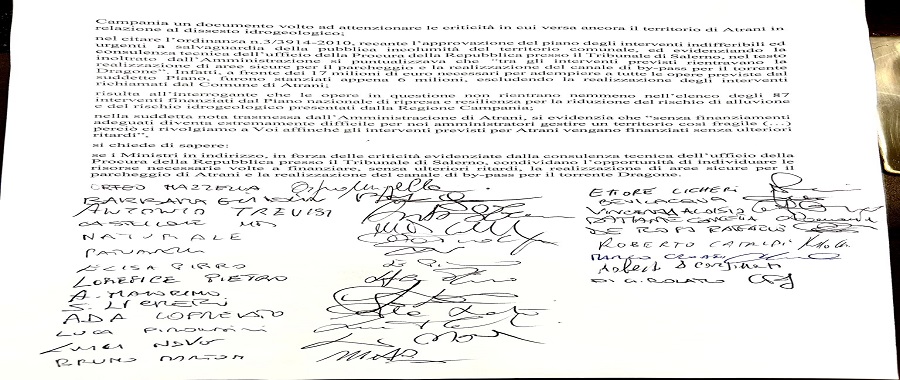 Campania un documento volto ad attenzionare le criticità in cui versa ancora il territorio di Atrani in
relazione al dissesto idrogeologico;
nel citare l'ordinanza n.3/3914-2010, recante l'approvazione del piano degli interventi indifferibili ed
urgenti a salvaguardia della pubblica incolumità del territorio comunale, ed evidenziando la
consulenza tecnica dell'ufficio della Procura della Repubblica presso il Tribunale di Salerno, nel testo
inoltrato dall'Amministrazione si puntualizzava che "tra gli interventi previsti rientravano la
realizzazione di aree sicure per il parcheggio e la realizzazione del canale di by-pass per il torrente
Dragone". Infatti, a fronte dei 17 milioni di euro necessari per adempiere a tutte le opere previste dal
suddetto Piano, furono stanziati appena 6 milioni, escludendo la realizzazione degli interventi
richiamati dal Comune di Atrani;
risulta all'interrogante che le opere in questione non rientrano nemmeno nell'elenco degli 87
interventi finanziati dal Piano nazionale di ripresa e resilienza per la riduzione del rischio di alluvione
e del rischio idrogeologico presentati dalla Regione Campania;
nella suddetta nota trasmessa dall'Amministrazione di Atrani, si evidenzia che "senza finanziamenti
adeguati diventa estremamente difficile per noi amministratori gestire un territorio così fragile (...)
perciò ci rivolgiamo a Voi affinché gli interventi previsti per Atrani vengano finanziati senza ulteriori
ritardi",
si chiede di sapere:
se i Ministri in indirizzo, in forza delle criticità evidenziate dalla consulenza tecnica dell'ufficio della
Procura della Repubblica presso il Tribunale di Salerno, condividano l'opportunità di individuare le
risorse necessarie volte a finanziare, senza ulteriori ritardi, la realizzazione di aree sicure per il
parcheggio di Atrani e la realizzazione del canale di by-pass per il torrente Dragone.
ORFEO MAZZELLA
BARBARA
ANTONIO TREVISI
NATURALE
PATUANELLI
ELISA PIRRO
LOREFICE PIETRO
A. MAIORINO
S. LICHERI
ADA LOPREIATO
LUCA PIRONDINI
LUIGI NAVE
BRUNO MARTON
ETTORE LICHERI
BEVILACQUA
VINCENZA ALOISIO
DE ROSA RAFFAELE
ROBERTO CATALDI
DI GIROLAMO